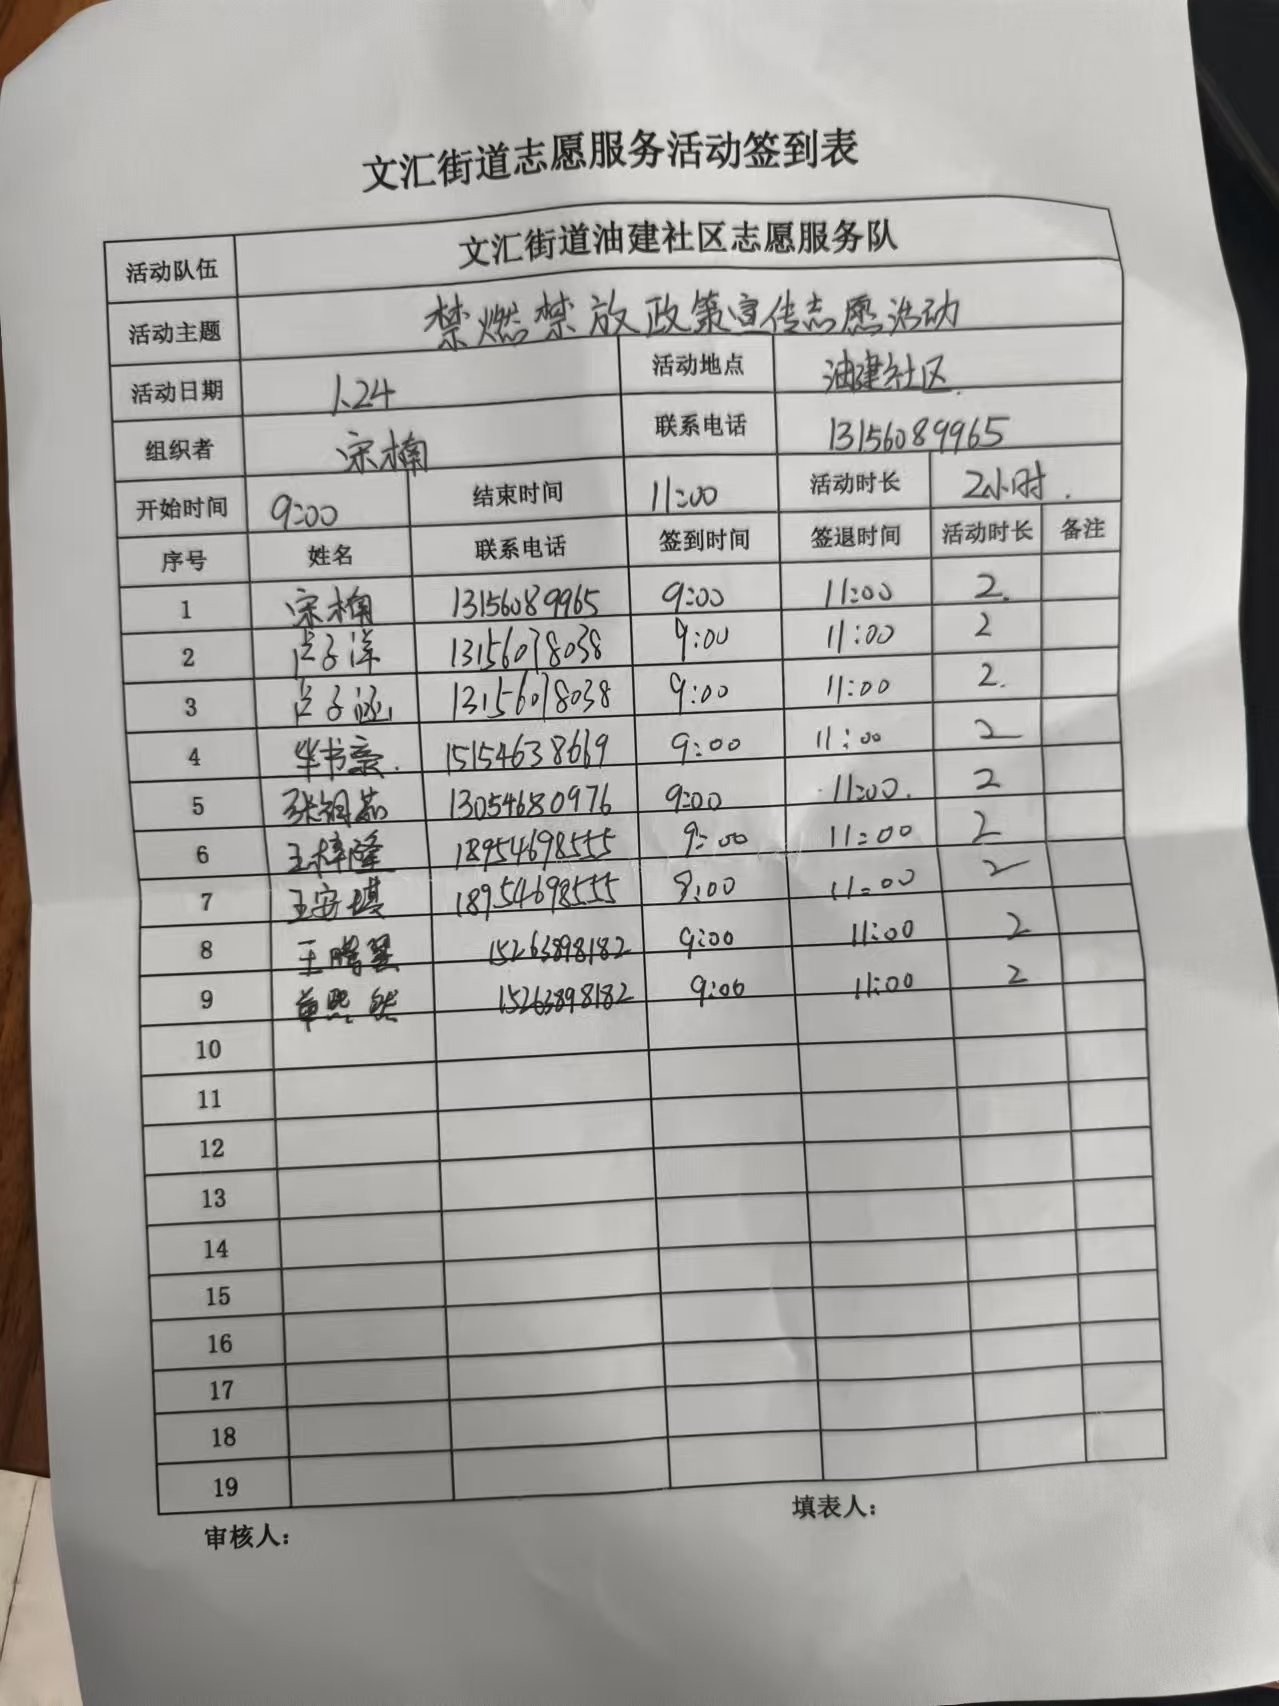 文汇街道志愿服务活动签到表
活动队伍 文汇街道油建社区志愿服务队
活动主题 禁燃禁放政策宣传志愿活动
活动日期 1.24 活动地点 油建社区
组织者 宋楠 联系电话 13156089965
开始时间 9:00 结束时间 11:00 活动时长 2小时.
序号 姓名 联系电话 签到时间 签退时间 活动时长 备注
1 宋楠 13156089965 9:00 11:00 2.
2 子洋 13156078038 9:00 11:00 2
3 子涵 13156078038 9:00 11:00 2.
4 毕书豪. 15154638669 9:00 11:00 2
5 张 茹 13054680976 9:00 11:00. 2
6 王梓隆 18954698555 9:00 11:00 2
7 王安琪 18954698555 8:00 11:00 2
8 王 15263898182 9:00 11:00 2
9 单熙然 15263898182 9:00 11:00 2
10
11
12
13
14
15
16
17
18
19
审核人： 填表人：